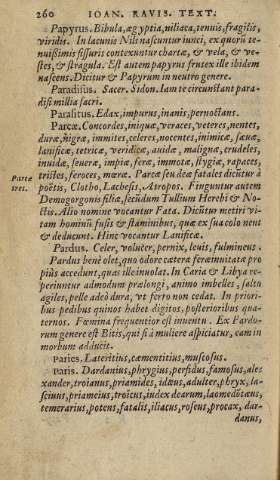 260 IOAN. RAVIS. TEXT.
Papyrus. Bibula, ægyptia, niliaca, tenuis, fragilis,
viridis. In lacunis Nili nascuntur iunci, ex quorũ te-
nuißimis fissuris contexuntur chartæ, & vela, & ve-
stes, & stragula. Est autem papyrus frutex ille ibidem
nascens. Dicitur & Papyrum in neutro genere.
Paradisus. Sacer. Sidon. Iam te circũstant para-
disi millia sacri.
Parasitus. Edax, impurus, inanis, pernoctans.
Parcæ. Concordes, iniquæ, veraces, veteres, nentes,
duræ, nigræ, immites, celeres, nocentes, inimicæ, sæuæ,
lanificæ, tetricæ, veridicæ, auidæ, malignæ, crudeles,
inuidæ, seueræ, impiæ, feræ, immotæ, stygiæ, rapaces,
Parcæ tristes, feroces, mœræ. Parcæ seu deæ fatales dicũtur à
tres. poëtis, Clotho, Lachesis, Atropos. Finguntur autem
Demogorgonis filiæ, secũdum Tullium Herebi & No-
ctis. Alio nomine vocantur Fata. Dicũtur metiri vi-
tam hominũ fusis & staminibus, quæ ex sua colo nent
& deducunt. Hinc vocantur Lanificæ.
Pardus. Celer, volucer, pernix, leuis, fulmineus.
Pardus benè olet, quo odore cætera feræ inuitatæ pro
piùs accedunt, quas ille inuolat. In Caria & Libya re-
periuntur admodum prælongi, animo imbelles, saltu
agiles, pelle adeò dura, vt ferro non cedat. In priori-
bus pedibus quinos habet digitos, posterioribus qua-
ternos. Fœmina frequentior est inuentu. Ex Pardo-
rum genere est Bitis, qui si à muliere aspiciatur, eam in
morbum adducit.
Paries. Lateritius, cæmentitius, muscosus.
Paris. Dardanius, phrygius, perfidus, famosus, ale
xander, troianus, priamides, idæus, adulter, phryx, la-
sciuus, priameius, troicus, iudex dearum, laomedõtæus,
temerarius, potens, fatalis, iliacus, roseus, procax, dar-
danus,